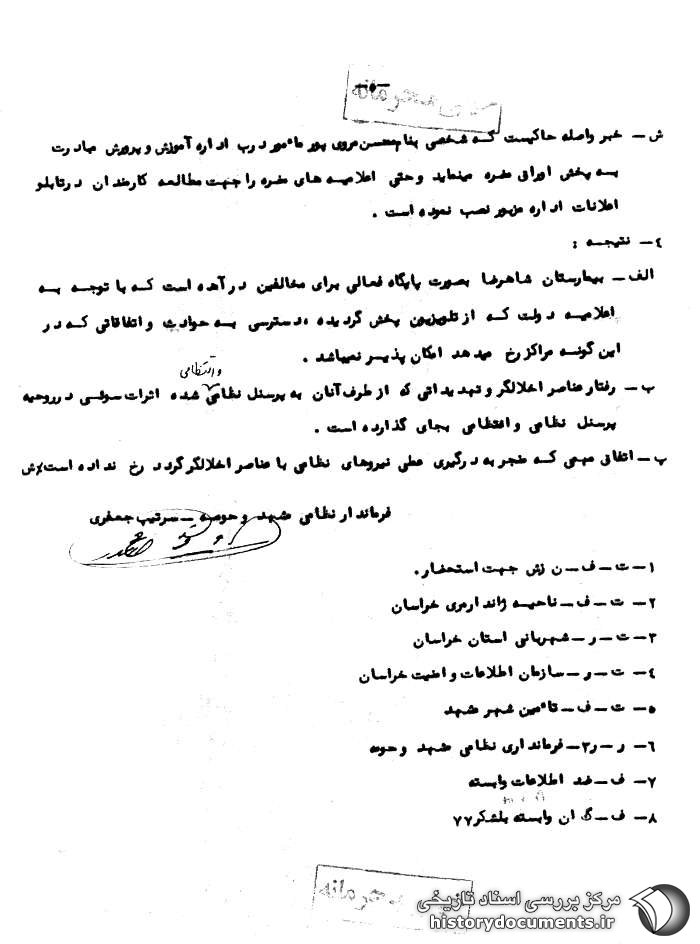 خیلی محرمانه
-۵-
ش - خبر واصله حاکیست که شخصی بنام محسن مروی پور مأمور درب اداره آموزش و پرورش مبادرت
به پخش اوراق مضره مینماید و حتی اعلامیه های مضره را جهت مطالعه کارمندان در تابلو
اعلانات اداره مزبور نصب نموده است .
۴- نتیجه :
الف - بیمارستان شاهرضا بصورت پایگاه فعالی برای مخالفین در آمده است که با توجه به
اعلامیه دولت که از تلویزیون پخش گردیده ،دسترسی به حوادث و اتفاقاتی که در
این گونه مراکز رخ میدهد امکان پذیر نمیباشد .
ب - رفتار عناصر اخلالگر و تهدیداتی که از طرف آنان به پرسنل نظامی و انتظامی شده اثرات سوئی در روحیه
پرسنل نظامی و انتظامی بجای گذارده است .
پ - اتفاق مهمی که منجر به درگیری عملی نیروهای نظامی با عناصر اخلالگر گردد رخ نداده است
فرماندار نظامی مشهد و حومه - سرتیپ جعفری
۱- ت - ف - ن زش جهت استحضار .
۲- ت - ف - ناحیه ژاندارمری خراسان
۳- ت - ر - شهربانی استان خراسان
۴- ت - ر - سازمان اطلاعات و امنیت خراسان
۵- ت - ف - تأمین شهر مشهد
۶- ر - ر۳- فرمانداری نظامی مشهد و حومه
۷- ف - ضد اطلاعات وابسته
۸- ف - گ ان وابسته بلشکر ۷۷
خیلی محرمانه
مرکز بررسی اسناد تاریخی
historydocuments.ir